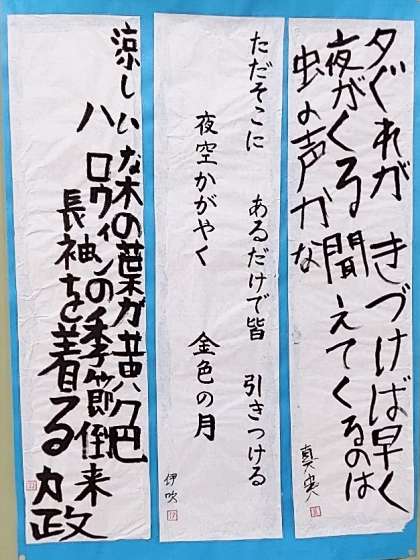 夕ぐれが きづけば早く
夜がくる 聞えてくるのは
虫の声かな
真実
ただそこに あるだけで皆 引きつける
夜空かがやく 金色の月
伊吹
涼しいな木の葉が黄色
ハロウィンの季節倒来
長袖を着る 力政